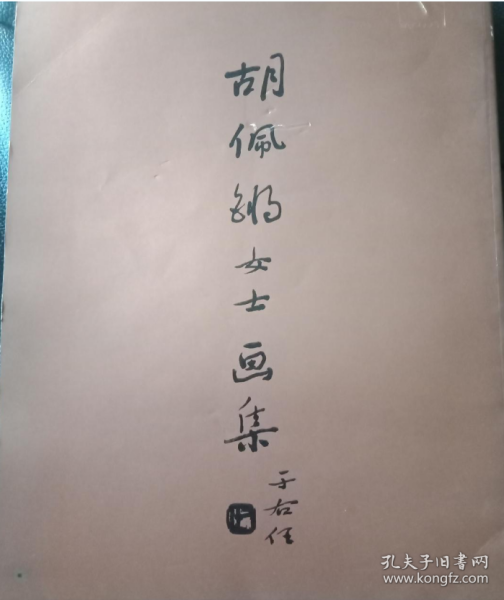 胡佩锵女士画集
于右任
孔夫子旧书网
www.kongfz.com